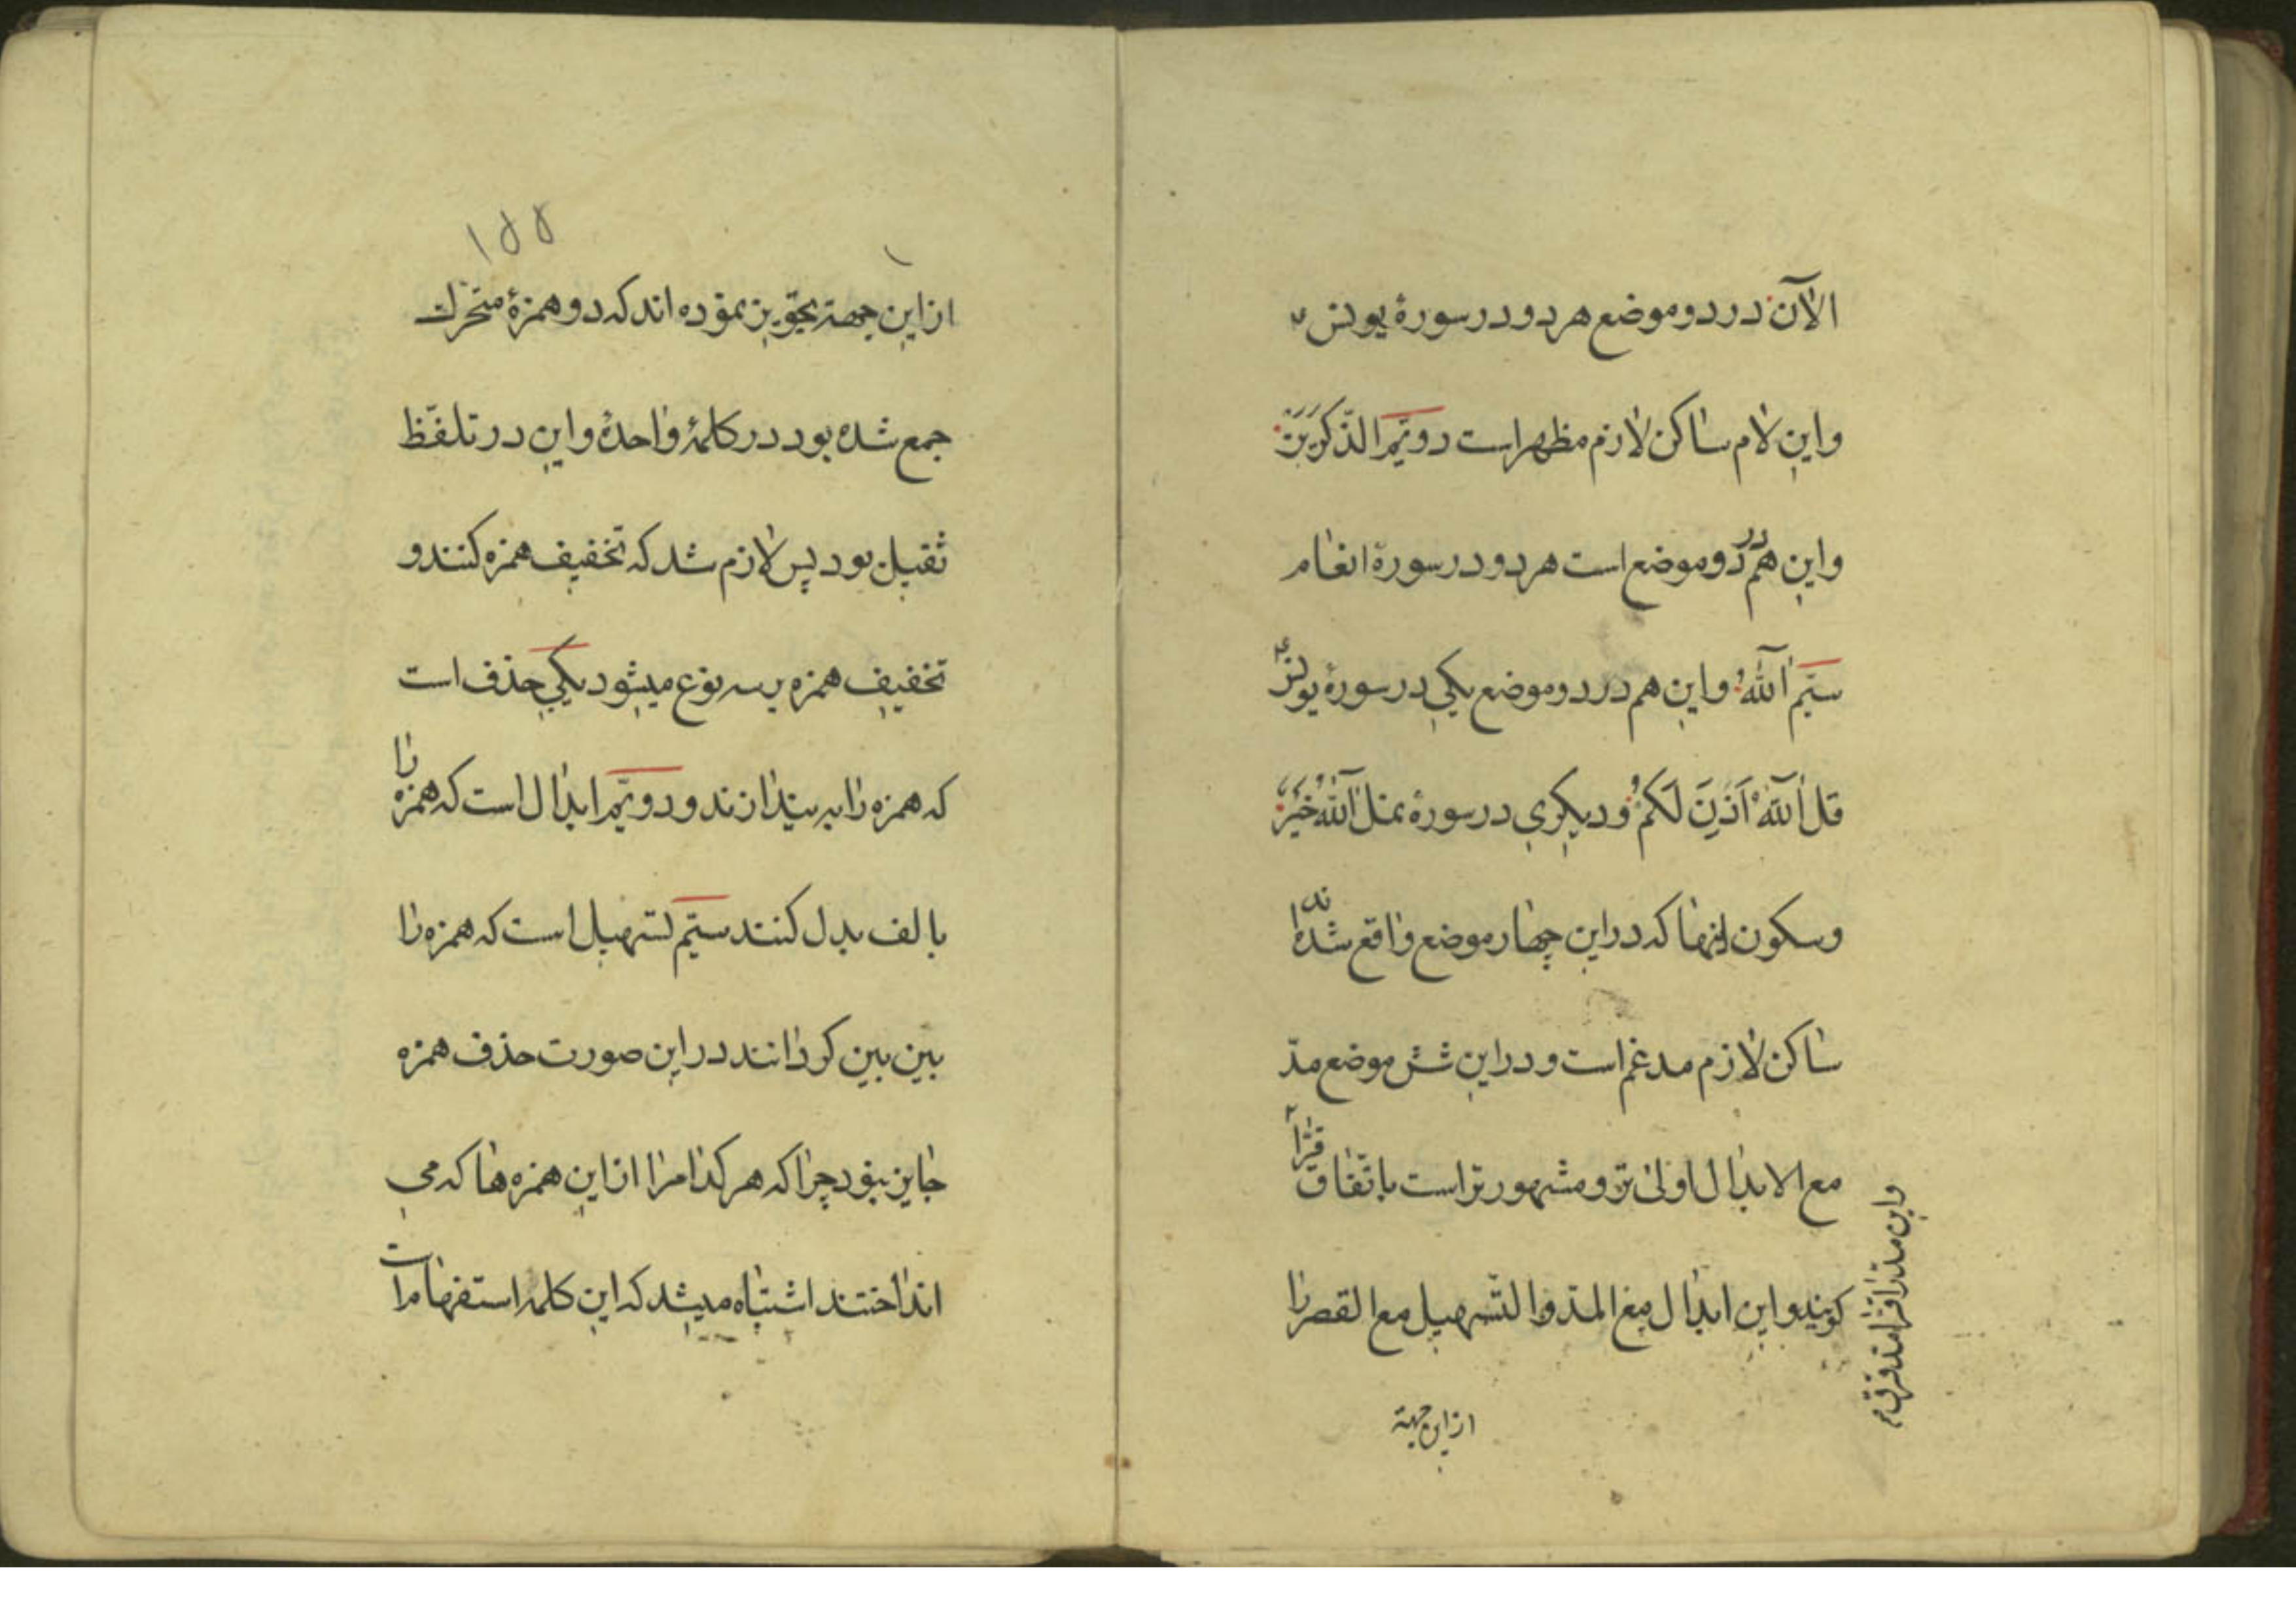 الآن در دو موضع هر دو در سورهٔ یونس ع
و این لام ساکن لازم مظهر است دویّم الذّکرین
و این هم در دو موضع است هر دو در سورة انعام
سیّم آللّه و این هم در دو موضع یکی در سورهٔ یونس ع
قل آللّهُ اَذِنَ لَکُم و دیکری در سورهٔ نمل آللّهُ خَیْرٌ
و سکون اینها که در این چهار موضع واقع شده‌اند
ساکن لازم مدغم است و در این شش موضع مدّ
مع الابدال اولی تر و مشهورتر است باتّفاق قرّاء
کویند و این ابدال مع المدّ و التّسهیل مع القصر را
و این مدّ را قرّا مدّ فرق
از این جهة
١۵۵
از این جهة تجویز نموده اند که دو همزهٔ متحرّك
جمع شده بود در کلمهٔ واحدهٔ و این در تلفّظ
ثقیل بود پس لازم شد که تخفیف همزه کنند و
تخفیف همزه بسه نوع میشود یکی حذف است
که همزه را به بیندازند و دویّم ابدال است که همزه را
بالف بدل کنند سیّم تسهیل است که همزه را
بین بین کردانند در این صورت حذف همزه
جایز نبود چرا که هر کدام را از این همزه ها که می
انداختند اشتباه میشد که این کلمه استفهام است